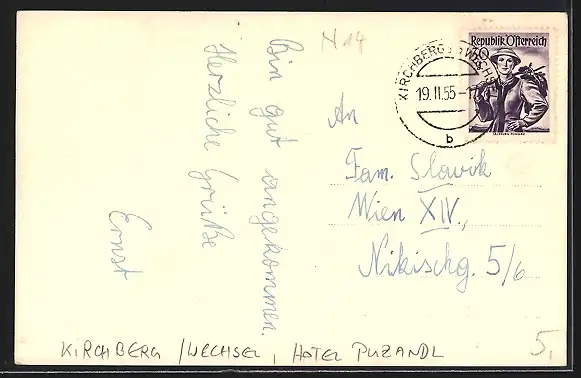 M 14
Bin gut angekommen.
Herzliche Grüße
Ernst
KIRCHBERG AM WECHSEL
19.II.55-17
b
Republik Österreich
An
Fam. Slawik
Wien XIV.,
Nikischg. 5/6
KIRCHBERG /WECHSEL, HOTEL PUZANDL
5,